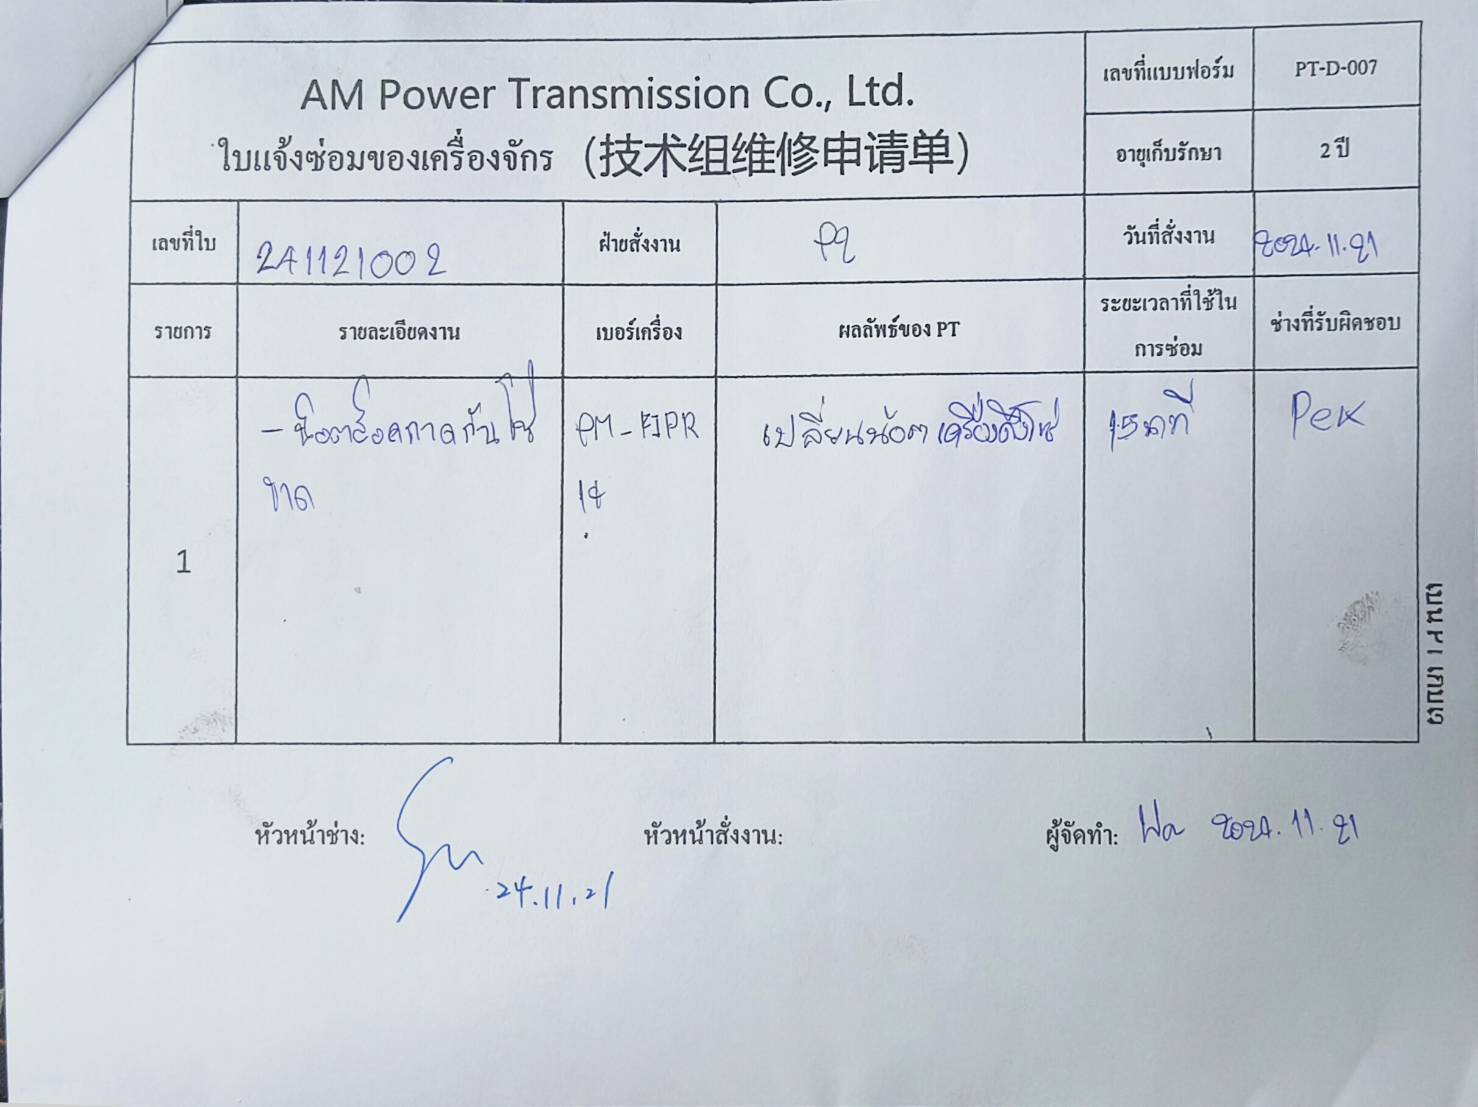 AM Power Transmission Co., Ltd.
ใบแจ้งซ่อมของเครื่องจักร (技术组维修申请单)
เลขที่แบบฟอร์ม PT-D-007
อายุเก็บรักษา 2 ปี
เลขที่ใบ 241121002 ฝ่ายสั่งงาน PQ วันที่สั่งงาน 2024.11.21
รายการ รายละเอียดงาน เบอร์เครื่อง ผลลัพธ์ของ PT ระยะเวลาที่ใช้ในการซ่อม ช่างที่รับผิดชอบ
1
- น็อตล็อคกาดกันโซ่
ขาด
PM-FJPR
14
เปลี่ยนน็อต เครื่องดึงโซ่
15 นาที
Pek
หัวหน้าช่าง: 24.11.21
หัวหน้าสั่งงาน:
ผู้จัดทำ: Wa 2024.11.21